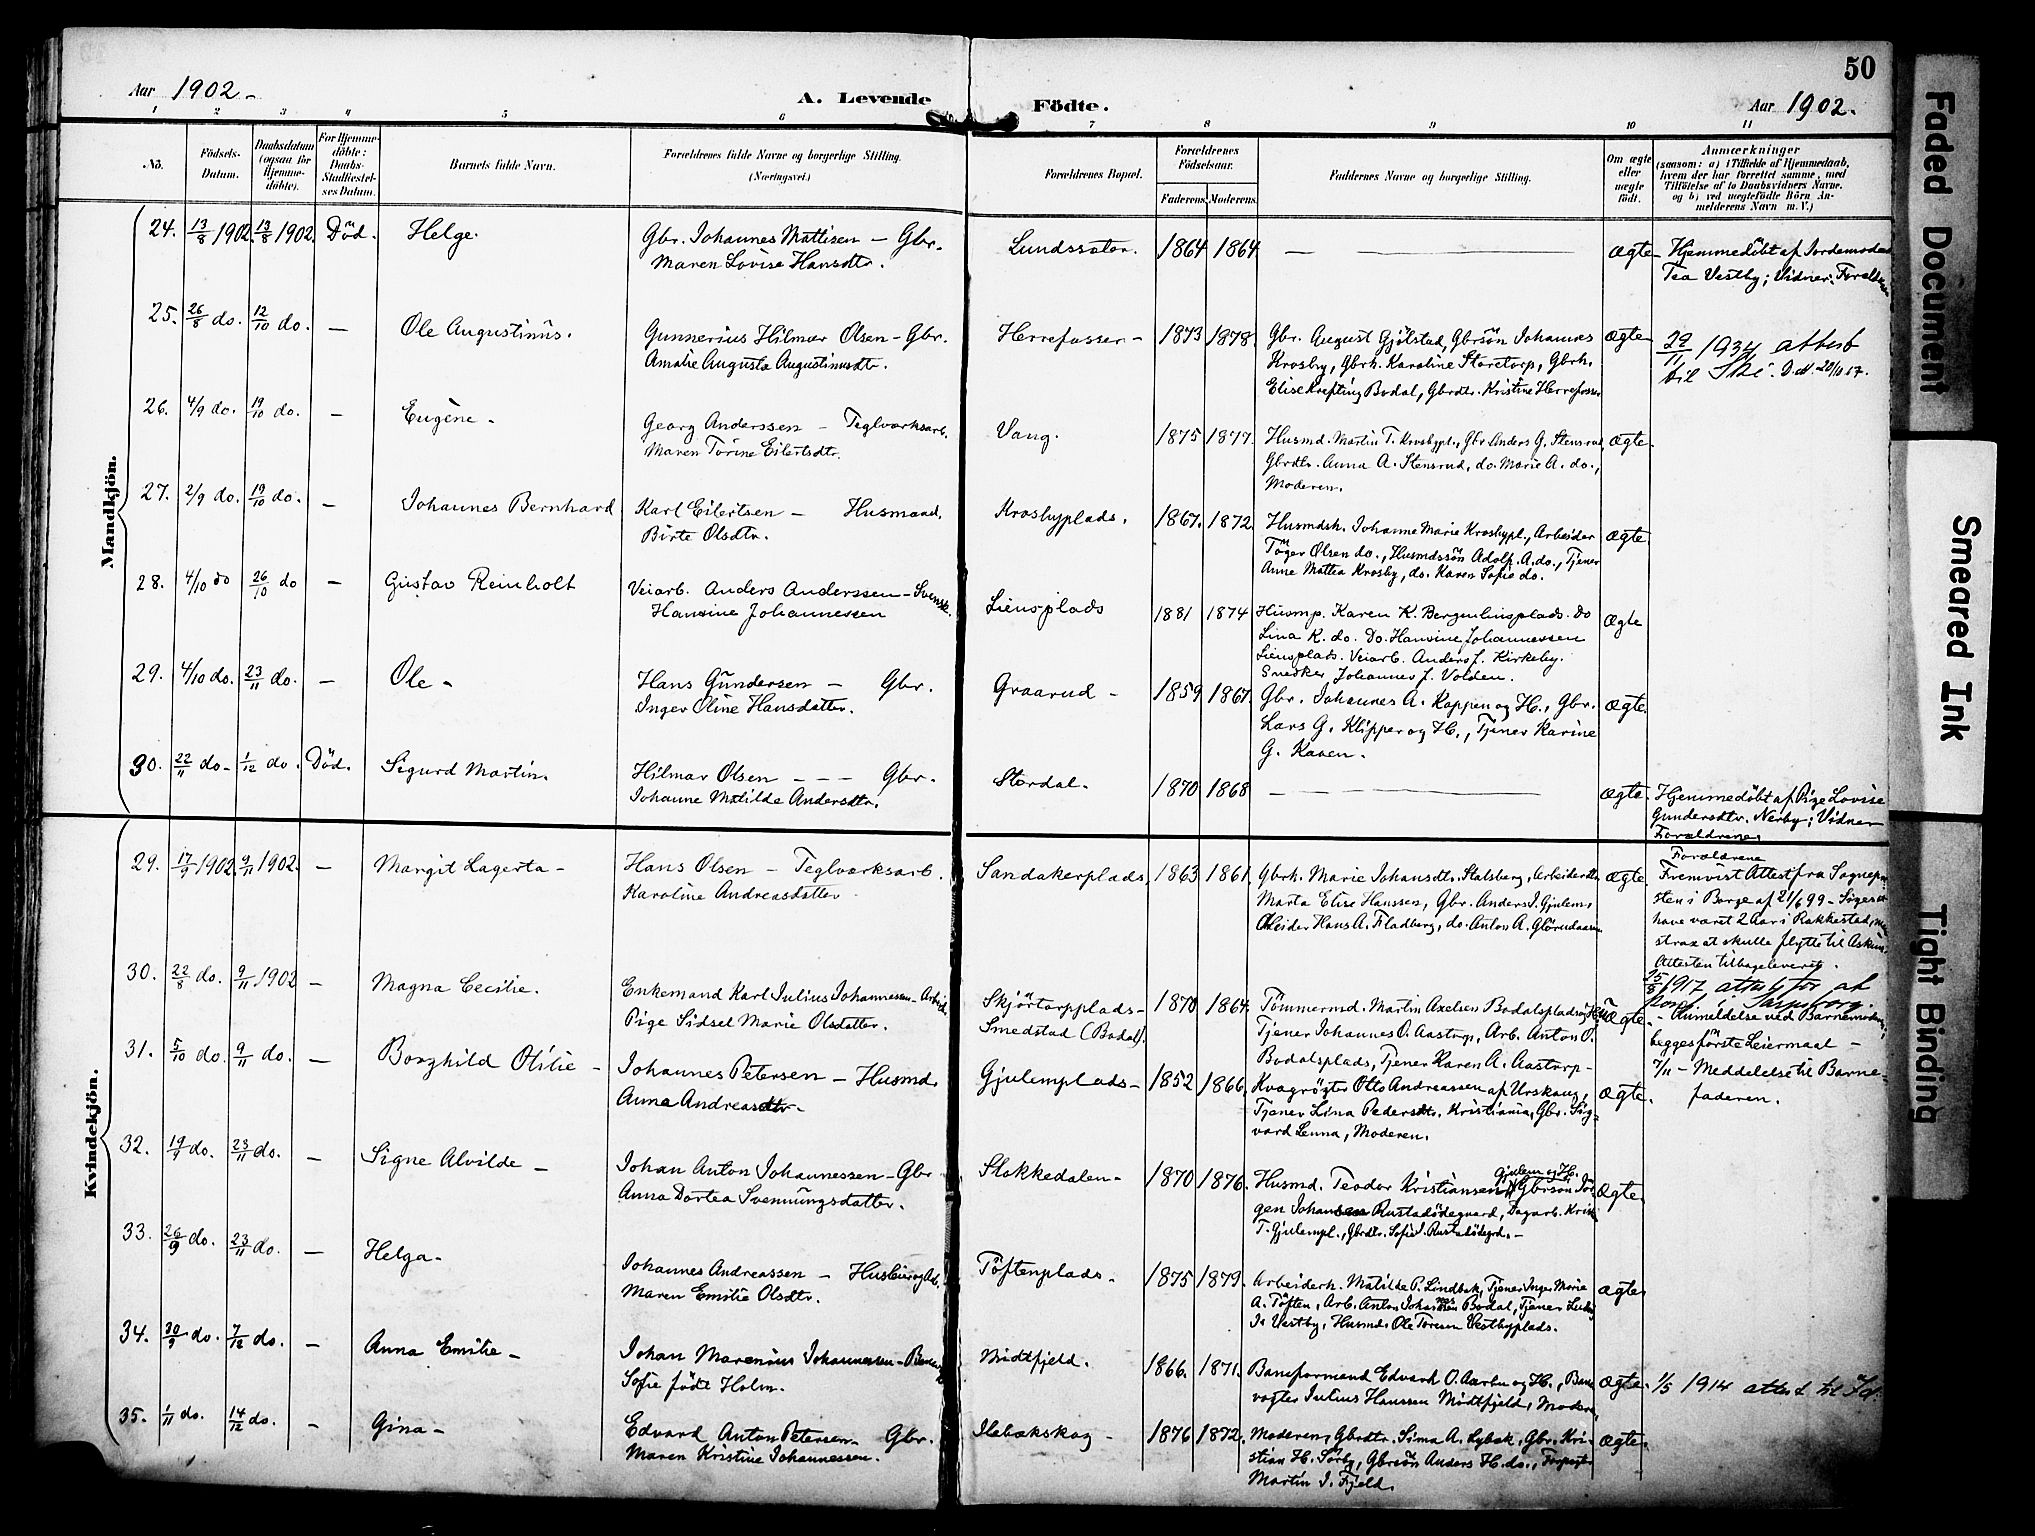 50
Aar 1902.
A. Levende Födte.
Aar 1902.
1 2 3 4 5 6 7 8 9 10 11
No.
Födsels-Datum.
Daabsdatum (ogsaa for Hjemme-döbte).
For Hjemme-döbte: Daabs-Stadfæstel-ses Datum.
Barnets fulde Navn.
Forældrenes fulde Navne og borgerlige Stilling.
(Næringsvei.)
Forældrenes Bopæl.
Forældrenes Födselsaar.
Faderens. Moderens.
Faddernes Navne og borgerlige Stilling.
Om ægte eller uægte födt.
Anmærkninger
(saasom: a) i Tilfælde af Hjemmedaab,
hvem der har forrettet samme, med
Tilföielse af to Daabsvidners Navne,
og b) ved uægtefödte Börn An-
melderens Navn m. V.)
Mandkjön.
24. 13/8 1902. 13/8 1902. Död. Helge. Gbr. Johannes Mattisen — Gbr. Lundssæter. 1864 1864 — ægte Hjemmedöbt af Jordemoder
Maren Lovise Hansdtr. Tea Vestby; Vidner: Forældrene
25. 26/8 do. 12/10 do. — Ole Augustinus. Gunnerius Hilmar Olsen — Gbr. Herrefosser — 1873 1878. Gbr. August Gjölstad, Gbrsön Johannes ægte 29/11 1934 attest
Amalie Augusta Augustinusdtr. Krosby, Gbrk. Karoline Storetorp, Gbrk. til Ski.
Elise Krefting Bodal, Gbrdtr. Kristine Herrefosser
26. 4/9 do. 19/10 do. — Eugène. Georg Anderssen — Teglværksarb. Vang. 1875 1877. Husmd. Martin T. Krosbypl., Gbr. Anders G. Stensrud, ægte.
Maren Torine Eilertsdtr. Gbrdtr. Anna A. Stensrud, do. Marie A. do.,
Moderen.
27. 2/9 do. 19/10 do. — Johannes Bernhard Karl Eilertsen — Husmand. Krosbyplads. 1867. 1872. Husmdsk. Johanne Marie Krosbypl., Arbeider ægte
Birte Olsdtr. Töger Olsen do., Husmdssön Adolf A. do., Tjener
Anne Mattea Krosby, do. Karen Sofie do.
28. 4/10 do 26/10 do — Gustav Reinholt Veiarb. Anders Anderssen — Svensk. Liensplads 1881 1874 Husmp. Karen K. Bergerliensplads. Do ægte
Hansine Johannessen Lina K. do. Do. Hansine Johannessen
Liensplads. Veiarb. Anders J. Kirkeby.
Snedker Johannes J. Volden.
29. 4/10 do. 23/11 do. — Ole — Hans Gundersen — Gbr. Graarud — 1859 1867. Gbr. Johannes A. Koppen og H., Gbr. ægte.
Inger Oline Hansdatter. Lars G. Klipper og H., Tjener Karine
G. Kaven.
30. 22/11 do. 1/12 do. Död. Sigurd Martin. Hilmar Olsen — — — Gbr. Stordal. 1870 1868 — ægte. Hjemmedöbt af Pige Lovise
Johanne Matilde Andersdtr. Gundersdtr. Nerby; Vidner
Forældrene.
Kvindekjön.
29. 17/9 1902. 9/11 1902. — Margit Lagerta — Hans Olsen — Teglværksarb. Sandakerplads. 1863 1861. Gbrk. Marie Johansdtr. Stalsberg, Arbeiderdtr. ægte. Forældrene
Karoline Andreasdatter Marta Elise Hanssen, Gbr. Anders I. Gjulem, Fremvist Attest fra Sognepre-
Arbeider Hans A. Fladberg, do. Anton A. Glörudaasen sten i Borge af 21/6 99 — Siges at
have været 2 Aar i Rakkestad, men
strax at skulle flytte til Askim.
Attesten tilbageleveret.
30. 22/8 do. 9/11 1902 — Magna Cecilie. Enkemand Karl Julius Johannessen — Arbeider Skjörtorpplads — 1870 1864. Tömmermd. Martin Axelsen Bodalsplads og ægte. 25/8 1917 attest for at
Pige Sidsel Marie Olsdatter. Smedstad (Bodal). Tjener Johannes O. Aastorp, Arb. Anton O. konf. i Sarpsborg.
Bodalsplads, Tjener Karen A. Aastorp — — Anmeldelse ved Barnemoderen;
begges förste Leiermaal —
7/11 — Meddelelse til Barne-
faderen.
31. 5/10 do. 9/11 do. — Borghild Otilie — Johannes Petersen — Husmd. Gjulemplads — 1852 1866. Kvægrögter Otto Andreassen af Urskoug, ægte.
Anna Andreasdtr. Tjener Lina Pedersdtr. Kristiania, Gbr. Sig-
vard Lenna, Moderen.
32. 19/9 do. 23/11 do. — Signe Alvilde — Johan Anton Johannessen — Gbr Stokkedalen — 1870 1876. Husmd. Teodor Kristiansen Gjulem og H., Gbrsön Jör- ægte
Anna Dortea Svenningsdatter. gen Johansen Rustadödegaard, Dagarb. Krist.
T. Gjulempl., Gbrdtr. Sofie J. Rustadödegrd. —
33. 26/9 do. 23/11 do. — Helga — Johannes Andreassen — Husleier og Arb. Töftenplads. 1875 1879. Arbeiderk. Matilde P. Lindbæk, Tjener Inger Marie ægte
Maren Emilie Olsdtr. A. Töften, Arb. Anton Johannes Bodal, Tjener
I. Vestby, Husmd. Ole Toresen Vestbyplads.
34. 30/9 do. 7/12 do. — Anna Emilie — Johan Marenius Johannessen — Midtfjeld. 1866. 1871. Baneformand Edvard O. Aarbu og H., Bane- ægte. 1/5 1914 attest til
Sofie födt Holm. vogter Julius Hanssen Midtfjeld, Moderen
35. 1/11 do. 14/12 do. — Gina — Edvard Anton Petersen — Gbr. Ilebækskog — 1876 1872. Moderen, Gbrdtr. Sima A. Lybæk, Gbr. Kri- ægte.
Maren Kristine Johannessen. stian H. Sörby, Gbrsön Anders H. do., Forpagter
Martin I. Fjeld.
Faded Document
Smeared Ink
Tight Binding